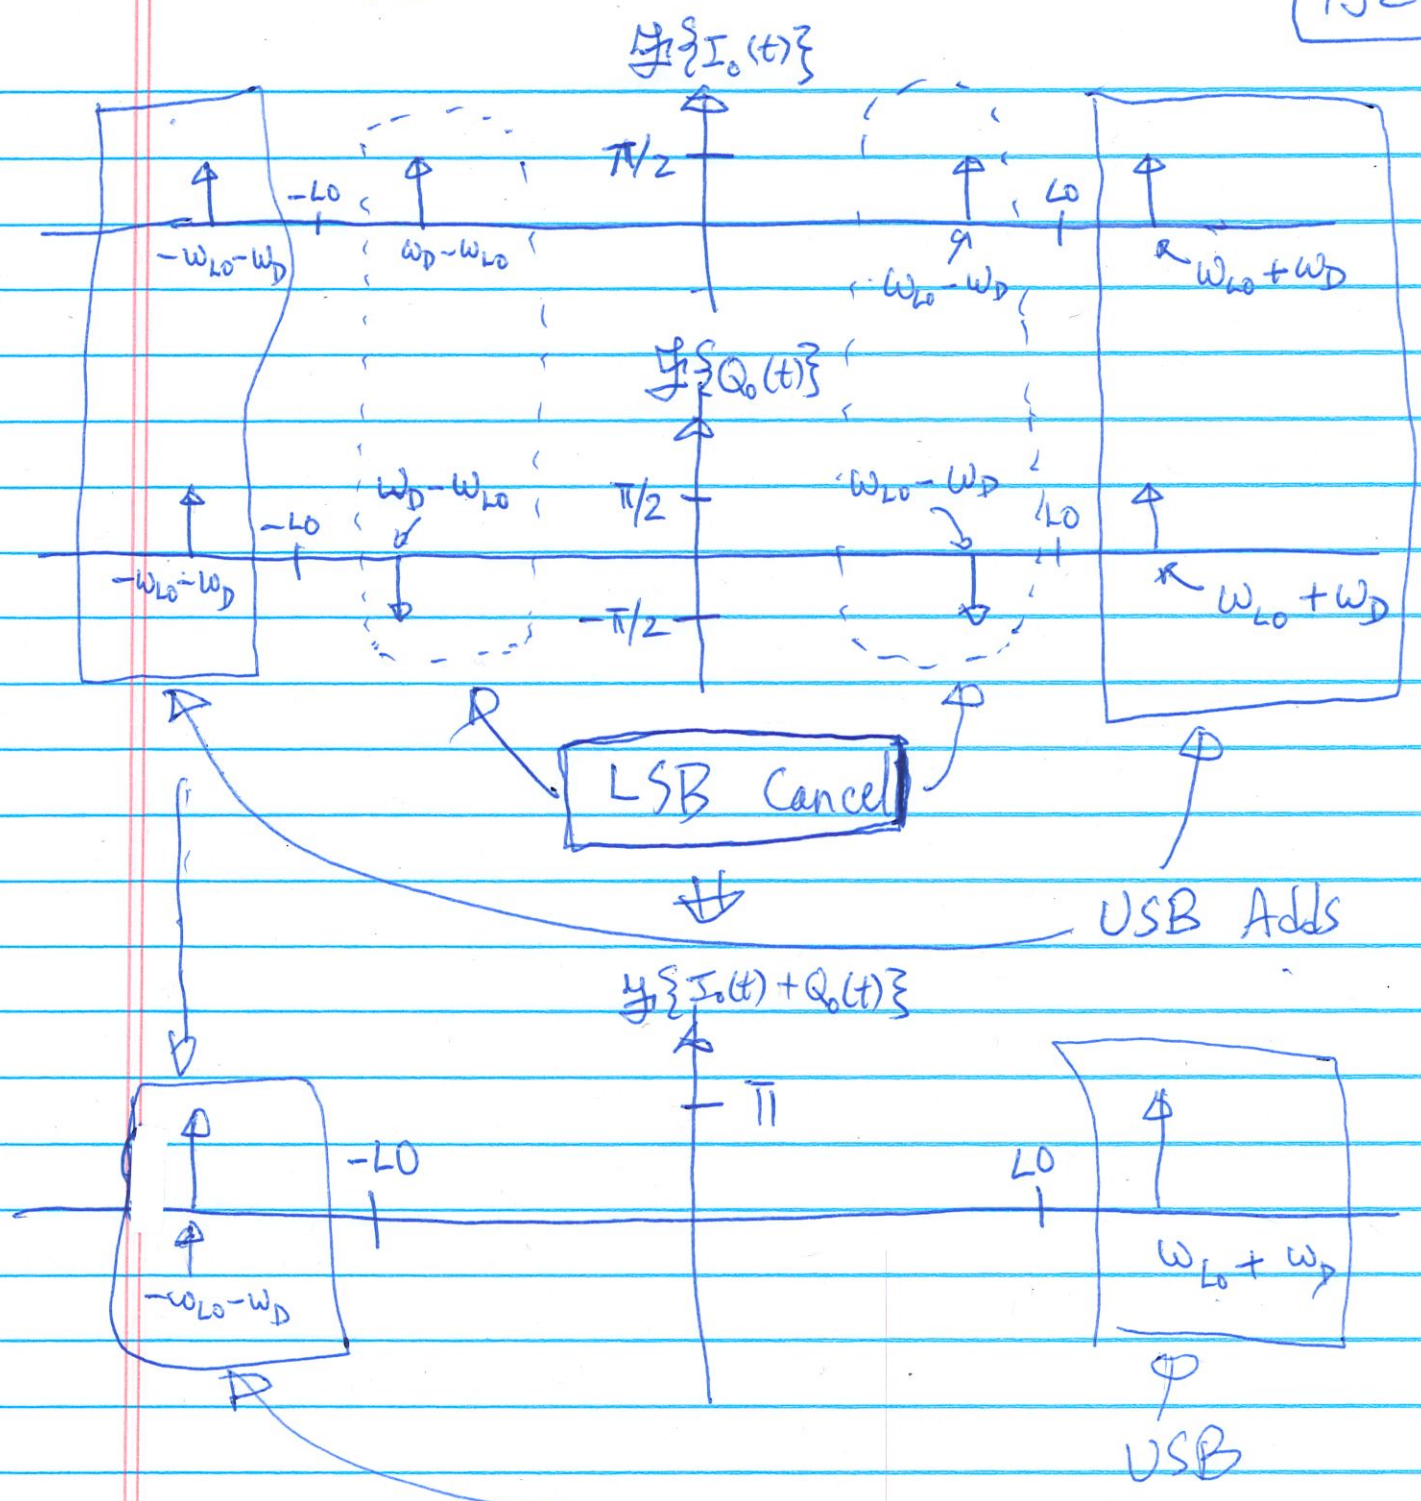 ℱ{I₀(t)}
π/2
-LO
LO
-ω_LO-ω_D
ω_D-ω_LO
ω_LO-ω_D
ω_LO+ω_D
ℱ{Q₀(t)}
ω_D-ω_LO
π/2
ω_LO-ω_D
-LO
LO
-ω_LO-ω_D
-π/2
ω_LO+ω_D
LSB Cancel
USB Adds
ℱ{I₀(t)+Q₀(t)}
π
-LO
LO
-ω_LO-ω_D
ω_LO+ω_D
USB